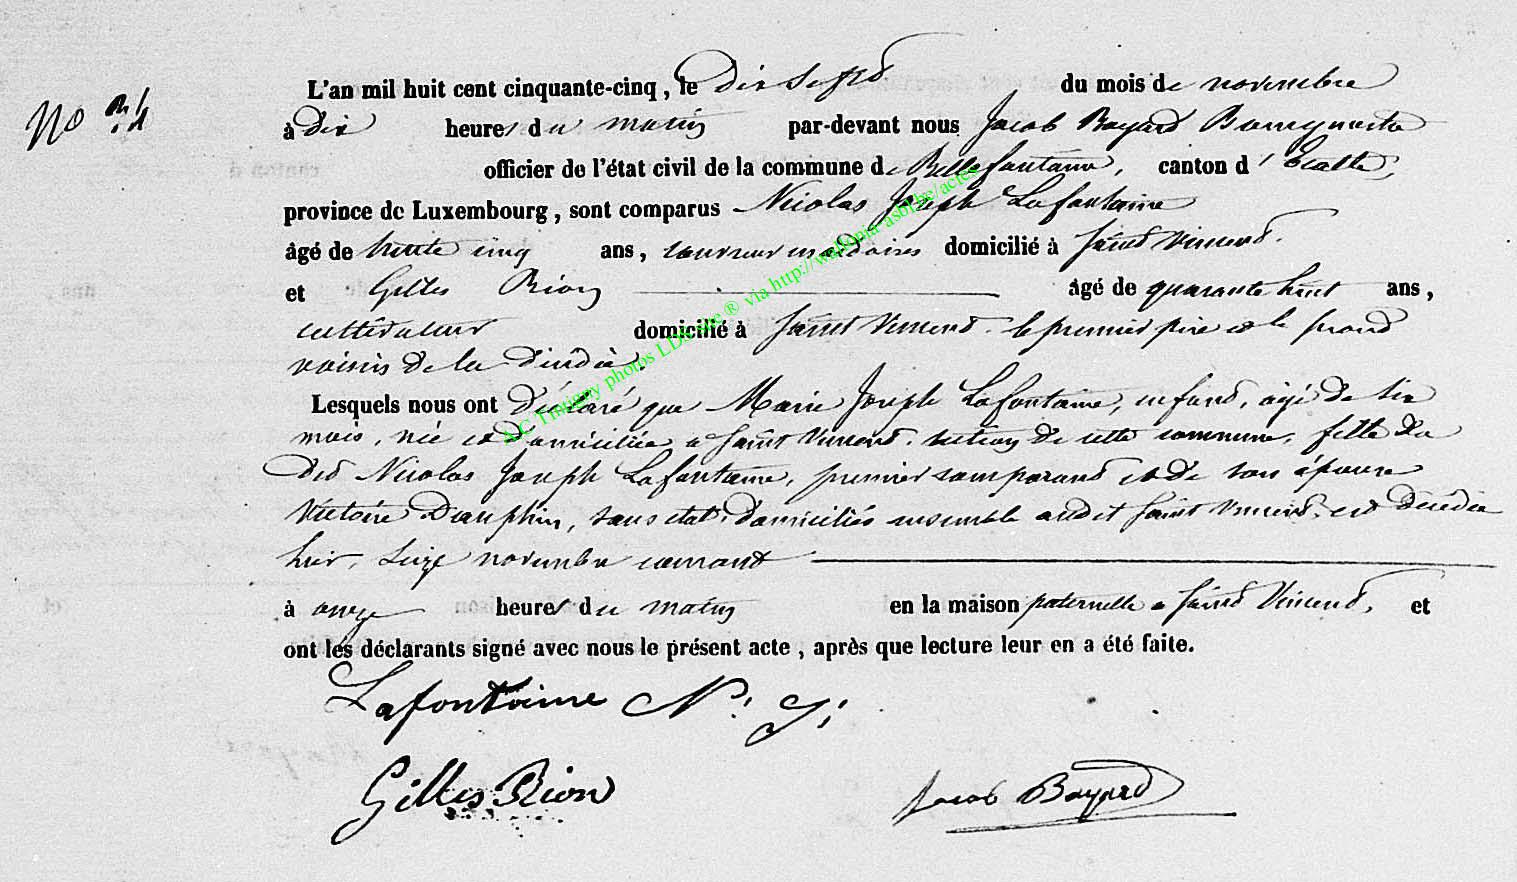 No 24
L'an mil huit cent cinquante-cinq, le dix sept du mois de novembre
à dix heures du matin par-devant nous Jacob Bayard Bourgmestre
officier de l'état civil de la commune de Bellefontaine, canton d'Etalle,
province de Luxembourg, sont comparus Nicolas Joseph Lafontaine
âgé de trente cinq ans, domicilié à Saint Vincent.
et Gilles Rion âgé de quarante huit ans,
cultivateur domicilié à Saint Vincent. le premier père et le second
voisin de la décédée.
Lesquels nous ont déclaré que Marie Joseph Lafontaine, enfant, âgé de six
mois, née et domiciliée à Saint Vincent. section de cette commune, fille du
dit Nicolas Joseph Lafontaine, premier comparant et de son épouse
Victoire Dauphin, sans état, domiciliés ensemble audit Saint Vincent, est décédée
hier, seize novembre courant
à onze heures du matin en la maison paternelle à Saint Vincent, et
ont les déclarants signé avec nous le présent acte, après que lecture leur en a été faite.
Lafontaine N. J.
Gilles Rion Jacob Bayard
A.C Tintigny photos LDS site ® via http://wallonia-asbl.be/actes